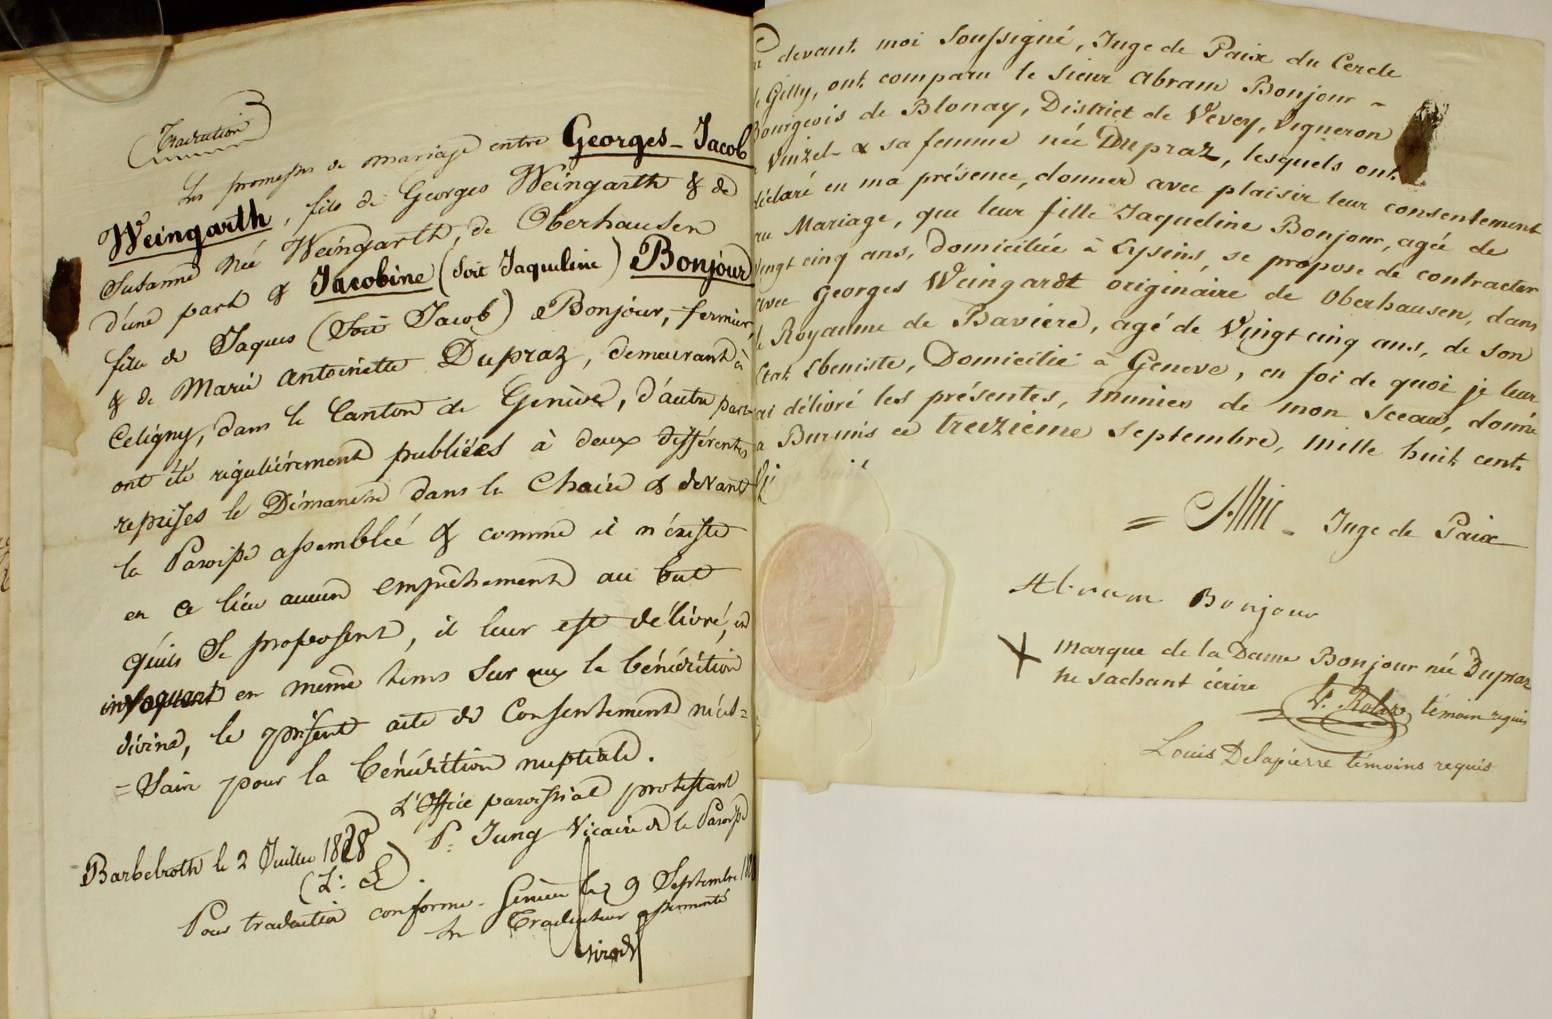 (Traduction)
Les promesses de mariage entre Georges-Jacob
Weingarth, fils de Georges Weingarth & de
Susanne née Weingarth, de Oberhausen
d'une part & Jacobine (soit Jaqueline) Bonjour
fille de Jaques (soit Jacob) Bonjour, fermier,
& de Marie Antoinette Dupraz, demeurant à
Celigny, dans le Canton de Genève, d'autre part
ont été réguliérement publiées à deux différentes
reprises le Dimanche dans la Chaire & devant
la Paroisse assemblée & comme il n'éxiste
en ce lieu aucun empêchement au but
qu'ils se proposent, il leur est délivré, en
invoquant en même tems sur eux la bénédiction
divine, le présent acte de Consentement néces=
=saire pour la bénédiction nuptiale.
L'Office paroissial protestant
P. Jung Vicaire de la Paroisse
Barbelroth le 2 Juillet 1828
(L. S.)
Pour traduction conforme. Genève le 9 Septembre
Le Traducteur assermenté
devant moi soussigné, Juge de Paix du Cercle
Gilly, ont comparu le Sieur Abram Bonjour -
Bourgeois de Blonay, District de Vevey, Vigneron
Vinzel & sa femme née Dupraz, lesquels ont
déclaré en ma présence, donner avec plaisir leur consentement
au Mariage, que leur fille Jaqueline Bonjour, agée de
Vingt cinq ans, domiciliée à Eysins, se propose de contracter
avec Georges Weingardt originaire de Oberhausen, dans
le Royaume de Baviere, agé de Vingt cinq ans, de son
Etat Ebeniste, Domicilié à Geneve, en foi de quoi je leur
ai délivré les présentes, munies de mon Sceau, donné
a Bursins ce treizieme Septembre, mille huit cent
= Juge de Paix
Abram Bonjour
X marque de la Dame Bonjour née Dupraz
ne sachant écrire
témoin requis
Louis Delapierre témoins requis